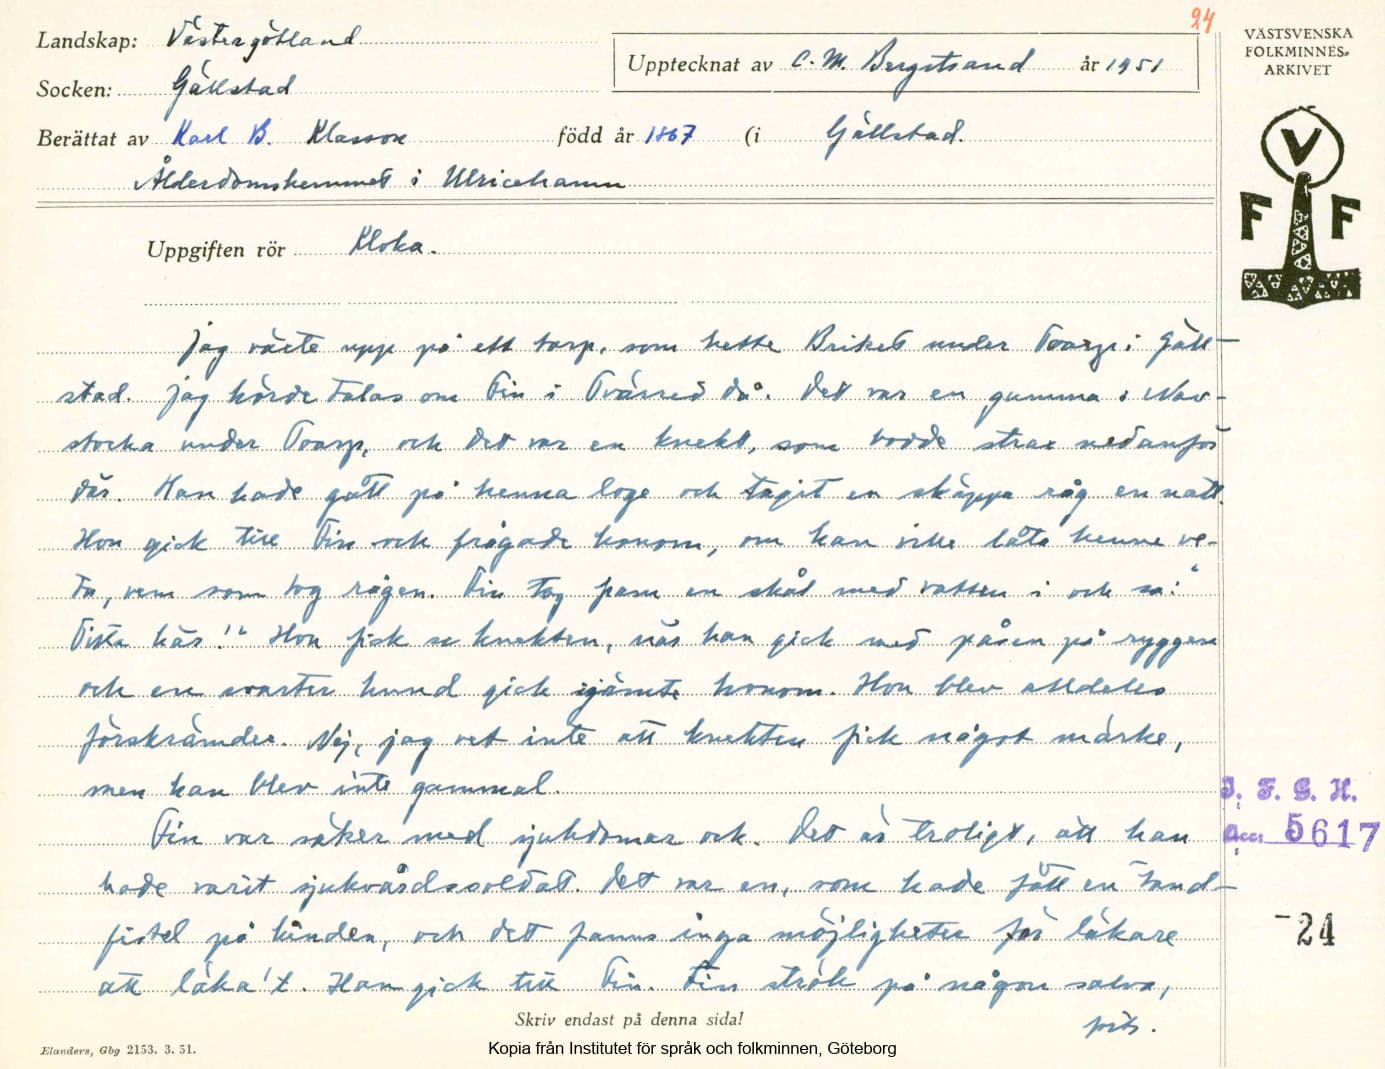 24
Landskap: Västergötland
Upptecknat av C. M. Bergstrand år 1951
Socken: Gällstad
Berättat av Karl B. Klasson född år 1867 (i Gällstad.
Ålderdomshemmet i Ulricehamn
Uppgiften rör Kloka.
VÄSTSVENSKA
FOLKMINNES-
ARKIVET
V
F F
Jag växte upp på ett torp, som hette Briket under Toarp i Gäll-
stad. Jag hörde talas om Fin i Tvärred då. Det var en gumma i Nav-
stocka under Toarp, och det var en knekt, som bodde strax nedanför
där. Han hade gått på henna loge och tagit en skäppa råg en natt.
Hon gick till Fin och frågade honom, om han ville låta henne ve-
ta, vem som tog rågen. Fin tog fram en skål med vatten i och sa: "
Titta här!" Hon fick se knekten, när han gick med påsen på ryggen
och en svarter hund gick jämte honom. Hon blev alldeles
förskrämder. Nej, jag vet inte att knekten fick något märke,
men han blev inte gammal.
Fin var säker med sjukdomar ock. Det är troligt, att han
hade varit sjukvårdssoldat. Det var en, som hade fått en tand-
fistel på kinden, och det fanns inga möjligheter för läkare
att läka't. Han gick till Fin. Fin strök på någon salva,
J. F. G. H.
Acc. 5617
-24
Skriv endast på denna sida!
Elanders, Gbg 2153. 3. 51.
Kopia från Institutet för språk och folkminnen, Göteborg